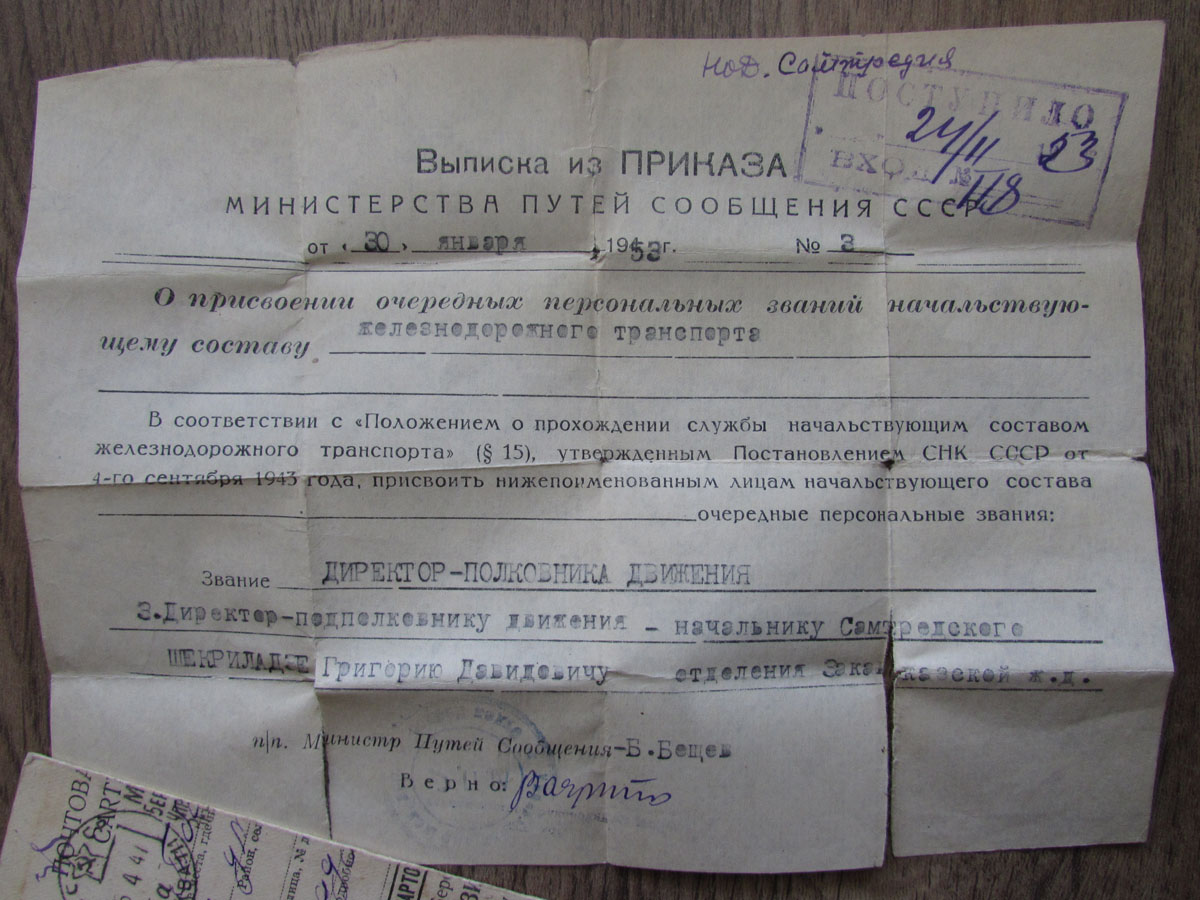 НОД. Самтредия
ПОСТУПИЛО
24/II 53
ВХОД. № 118
Выписка из ПРИКАЗА
МИНИСТЕРСТВА ПУТЕЙ СООБЩЕНИЯ СССР
от «30» января 1953 г. № 3
О присвоении очередных персональных званий начальствую-
щему составу железнодорожного транспорта
В соответствии с «Положением о прохождении службы начальствующим составом
железнодорожного транспорта» (§ 15), утвержденным Постановлением СНК СССР от
4-го сентября 1943 года, присвоить нижепоименованным лицам начальствующего состава
очередные персональные звания:
Звание ДИРЕКТОР-ПОЛКОВНИКА ДВИЖЕНИЯ
3.Директор-подполковнику движения - начальнику Самтредского
ШЕКРИЛАДЗЕ Григорию Давидовичу отделения Закавказской ж.д.
п/п. Министр Путей Сообщения-Б.Бещев
Верно:
ПОЧТОВА
CART
4 41